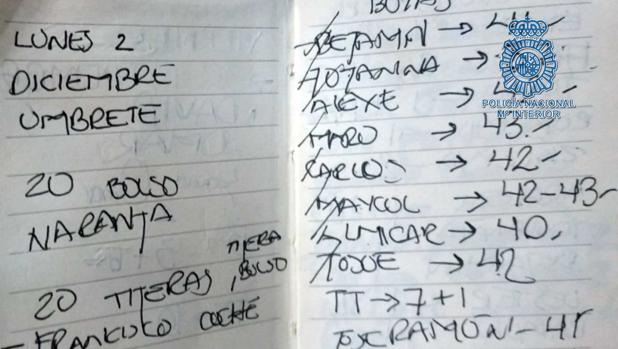 LUNES 2
DICIEMBRE
UMBRETE
20 BOLSO
NARANJA
20 TIJERAS
TIJERA
BOLSO
COCHE
BOTAS
→ 44
JOJANNA →
ALEXE →
MARO → 43
CARLOS → 42
MAYCOL → 42-43
ALMICAR → 40
JOSUE → 42
TT → 7+1
JOSE RAMON - 41
POLICIA NACIONAL
Mº INTERIOR